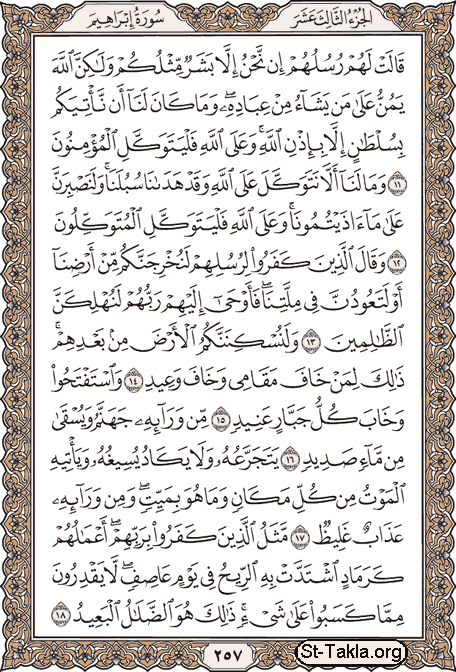 سُورَةُ إِبْرَاهِيمَ الجُزْءُ الثَّالِثُ عَشَرَ
قَالَتْ لَهُمْ رُسُلُهُمْ إِن نَّحْنُ إِلَّا بَشَرٌ مِّثْلُكُمْ وَلَٰكِنَّ ٱللَّهَ
يَمُنُّ عَلَىٰ مَن يَشَآءُ مِنْ عِبَادِهِۦ ۖ وَمَا كَانَ لَنَآ أَن نَّأْتِيَكُم
بِسُلْطَٰنٍ إِلَّا بِإِذْنِ ٱللَّهِ ۚ وَعَلَى ٱللَّهِ فَلْيَتَوَكَّلِ ٱلْمُؤْمِنُونَ
١١ وَمَا لَنَآ أَلَّا نَتَوَكَّلَ عَلَى ٱللَّهِ وَقَدْ هَدَىٰنَا سُبُلَنَا ۚ وَلَنَصْبِرَنَّ
عَلَىٰ مَآ ءَاذَيْتُمُونَا ۚ وَعَلَى ٱللَّهِ فَلْيَتَوَكَّلِ ٱلْمُتَوَكِّلُونَ
١٢ وَقَالَ ٱلَّذِينَ كَفَرُوا۟ لِرُسُلِهِمْ لَنُخْرِجَنَّكُم مِّنْ أَرْضِنَآ
أَوْ لَتَعُودُنَّ فِى مِلَّتِنَا ۖ فَأَوْحَىٰٓ إِلَيْهِمْ رَبُّهُمْ لَنُهْلِكَنَّ
ٱلظَّٰلِمِينَ ١٣ وَلَنُسْكِنَنَّكُمُ ٱلْأَرْضَ مِنۢ بَعْدِهِمْ ۚ
ذَٰلِكَ لِمَنْ خَافَ مَقَامِى وَخَافَ وَعِيدِ ١٤ وَٱسْتَفْتَحُوا۟
وَخَابَ كُلُّ جَبَّارٍ عَنِيدٍ ١٥ مِّن وَرَآئِهِۦ جَهَنَّمُ وَيُسْقَىٰ
مِن مَّآءٍ صَدِيدٍ ١٦ يَتَجَرَّعُهُۥ وَلَا يَكَادُ يُسِيغُهُۥ وَيَأْتِيهِ
ٱلْمَوْتُ مِن كُلِّ مَكَانٍ وَمَا هُوَ بِمَيِّتٍ ۖ وَمِن وَرَآئِهِۦ
عَذَابٌ غَلِيظٌ ١٧ مَّثَلُ ٱلَّذِينَ كَفَرُوا۟ بِرَبِّهِمْ ۖ أَعْمَٰلُهُمْ
كَرَمَادٍ ٱشْتَدَّتْ بِهِ ٱلرِّيحُ فِى يَوْمٍ عَاصِفٍ ۖ لَّا يَقْدِرُونَ
مِمَّا كَسَبُوا۟ عَلَىٰ شَىْءٍ ۚ ذَٰلِكَ هُوَ ٱلضَّلَٰلُ ٱلْبَعِيدُ ١٨
٢٥٧
St-Takla.org